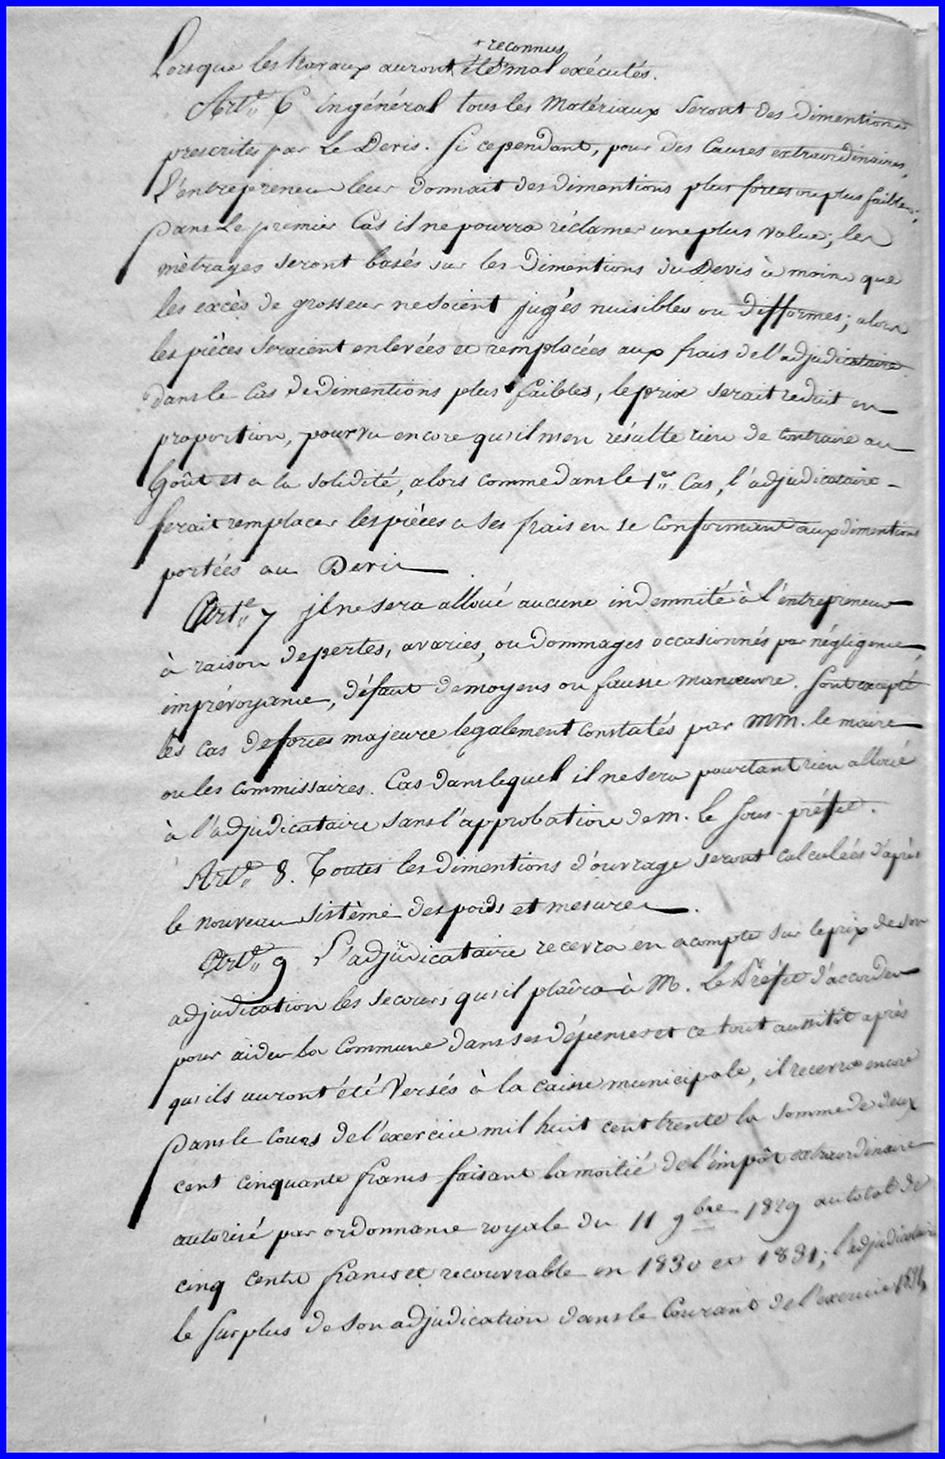 + reconnus
Lorsque les travaux auront été + mal exécutés.
Artle 6 En général tous les Matériaux Seront des dimentions
prescrites par Le Devis. Si cependant, pour des Causes extraordinaires,
L'entrepreneur leur donnait des dimentions plus fortes ou plus faibles;
Dans Le premier Cas il ne pourra réclamer une plus value; les
mètrages seront basés sur les Dimentions du Devis à moins que
les excès de grosseur ne soient jugés nuisibles ou difformes; alors
les pièces seraient enlevées et remplacées aux frais de l'adjudicataire
dans le Cas de dimentions plus faibles, le prix serait reduit en
proportion, pourvu encore qu'il n'en résulte rien de contraire au
Goût et a la solidité, alors comme dans le 1er Cas, l'adjudicataire
ferait remplacer les pièces a ses frais en se conformant aux dimentions
portées au Devis
Artle 7 il ne sera alloué aucune indemnité à l'entrepreneur
à raison de pertes, avaries, ou dommages occasionnés par négligence,
imprévoyance, défaut de moyens ou fausse manœuvre. Sont excepté
les cas de forces majeure legalement constatés par MM. le maire
ou les Commissaires. Cas dans lequel il ne sera pourtant rien alloué
à l'adjudicataire sans l'approbation de m. le Sous-préfet.
Artle 8. Toutes les dimentions d'ouvrage seront calculées d'après
le nouveau sistème des poids et mesures.
Artle 9 L'adjudicataire recevra en acompte sur le prix de son
adjudication les secours qu'il plaîra à M. Le Préfet d'accorder
pour aider la Commune dans ses dépenses et ce tout aussitôt après
qu'ils auront été Versés à la caisse municipale, il recevra encore
Dans le Cours de l'exercice mil huit cent trente la somme de deux
cent cinquante francs faisant la moitié de l'impôt extraordinaire
autorisé par ordonnance royale du 11 9bre 1829 au total de
cinq cents francs et recouvrable en 1830 et 1831; l'adjudicataire
le surplus de son adjudication dans le Courant de l'exercice 1831,